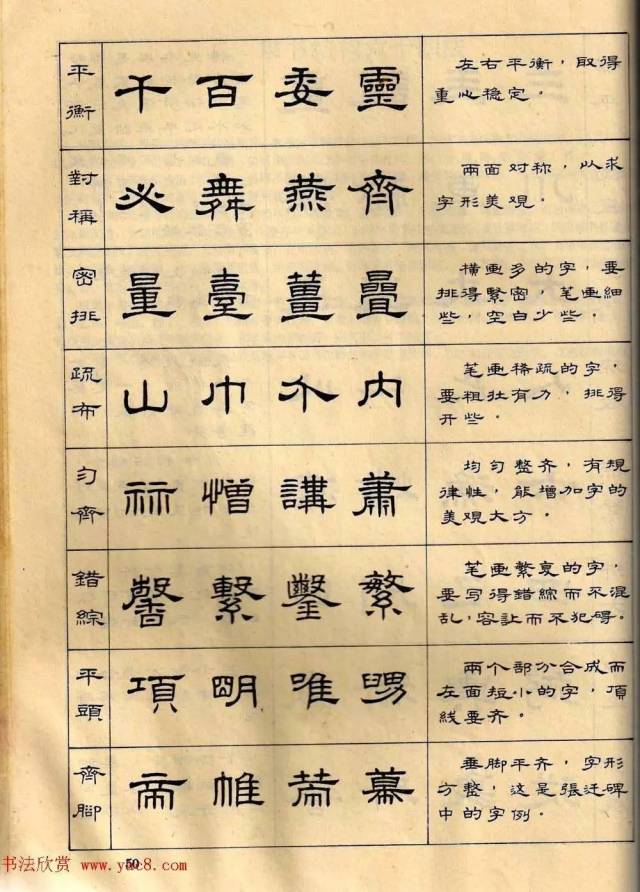 平衡
千百委靈
左右平衡，取得
重心稳定。
對稱
必舞燕齊
兩面对称，以求
字形美观。
密排
量臺薑疊
橫画多的字，要
排得緊密，笔画細
些，空白少些。
疏布
山巾介内
笔画稀疏的字，
要粗壮有力，排得
开些。
匀齊
憎講蕭
均匀整齐，有規
律性，能增加字的
美观大方。
錯綜
馨繫鑿繁
笔画繁复的字，
要写得錯綜而不混
乱，容让而不犯碍。
平頭
項明唯
兩个部分合成而
左面短小的字，頂
线要齐。
齊脚
帝帷
垂脚平齐，字形
方整，这是張迁碑
中的字例。
50
书法欣赏 www.yac8.com